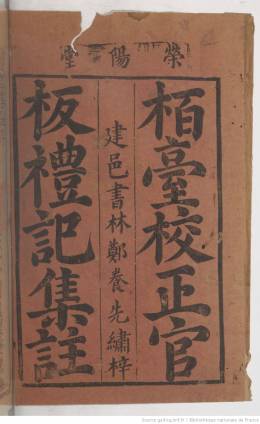 堂陽榮
栢臺校正官
建邑書林鄭養先繡梓
板禮記集註
Source gallica.bnf.fr / Bibliothèque nationale de France